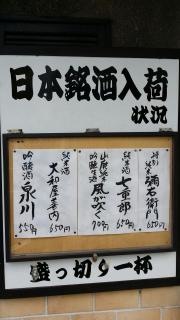 日本銘酒入荷
状況
特別純米 彌右衛門
650円
純米酒 七重郎
650円
山廃純米
吟醸生酒 風が吹く
710円
純米酒 大和屋善内
650円
吟醸酒 泉川
550円
盛っ切り一杯